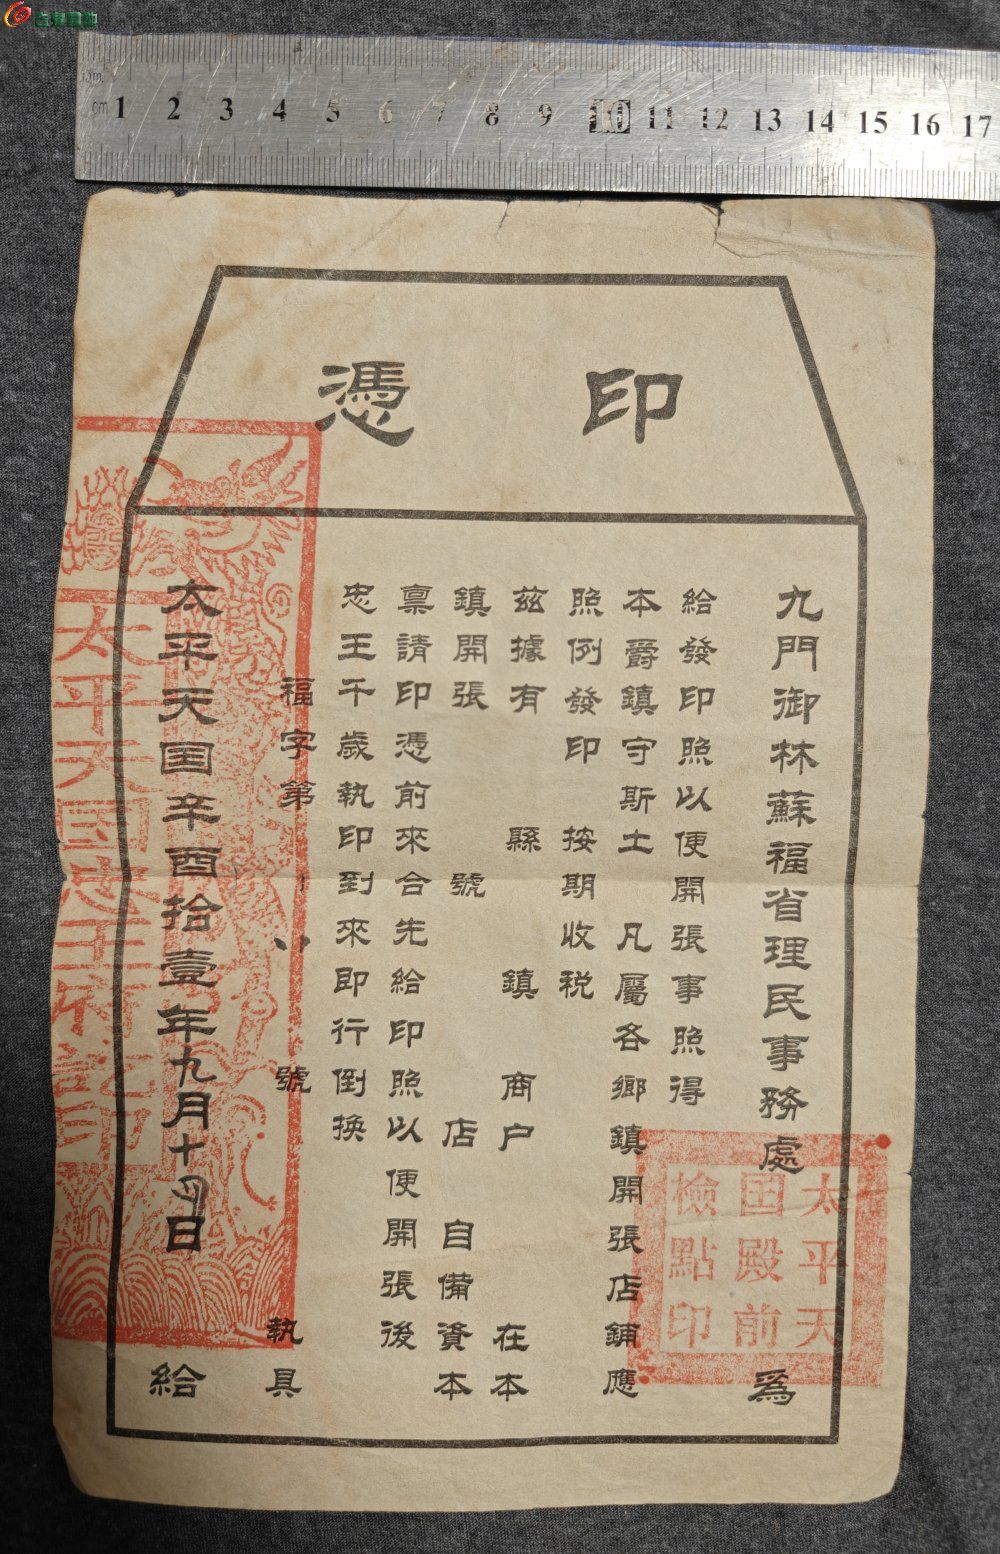 印憑
九門御林蘇福省理民事務處 爲
給發印照以便開張事照得
本爵鎮守斯土 凡屬各鄉鎮開張店鋪應
照例發印 按期收税
兹據有 縣 鎮 商户 在本
鎮開張 號 店 自備資本
稟請印憑前來合先給印照以便開張後
忠王千歲執印到來即行倒換
福字第 號 執具
太平天囯辛酉拾壹年九月十 日 給
太平天
囯殿前
檢點印
太平天囯忠王府
1 2 3 4 5 6 7 8 9 10 11 12 13 14 15 16 17
cm